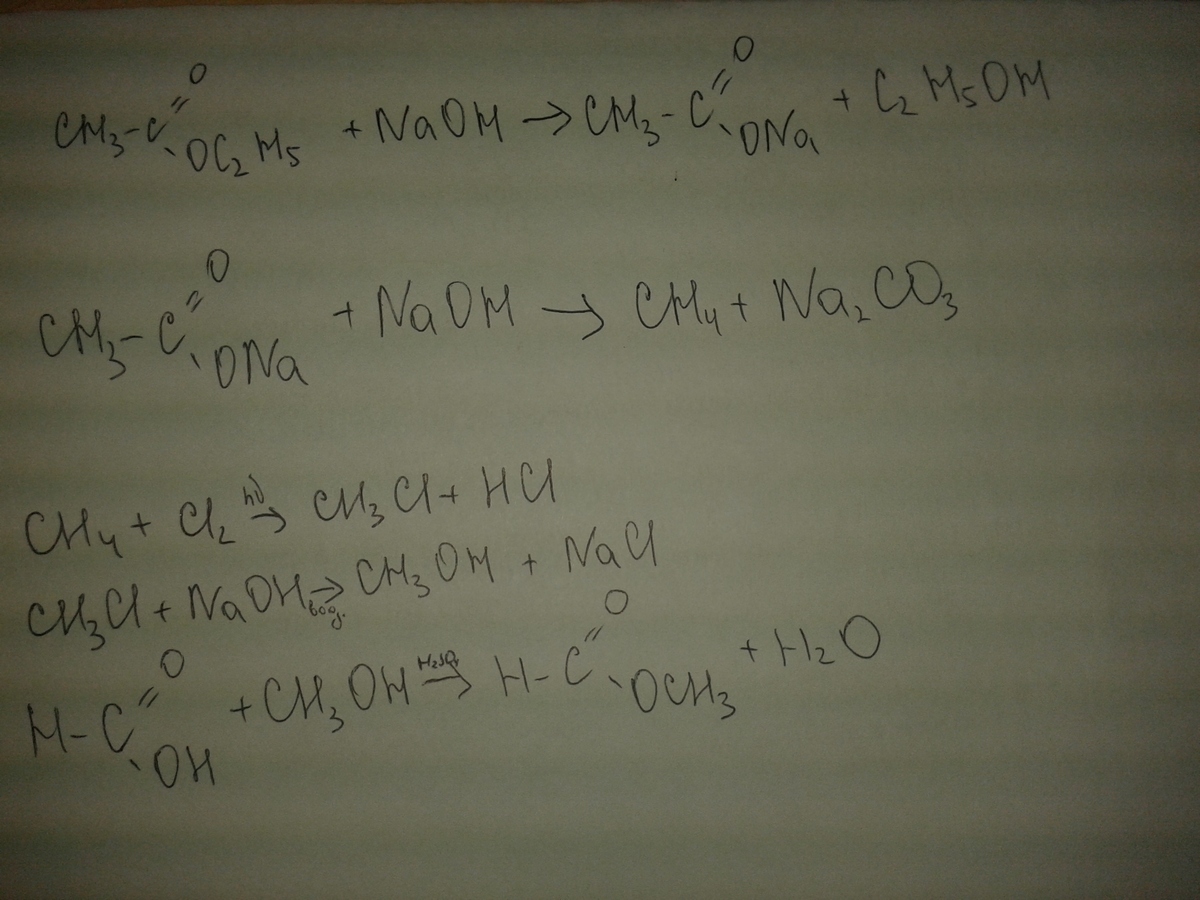 CH3-C=O-OC2H5 + NaOH → CH3-C=O-ONa + C2H5OH
CH3-C=O-ONa + NaOH → CH4 + Na2CO3
CH4 + Cl2 hν→ CH3Cl + HCl
CH3Cl + NaOH →вод. CH3OH + NaCl
H-C=O-OH + CH3OH H2SO4→ H-C=O-OCH3 + H2O